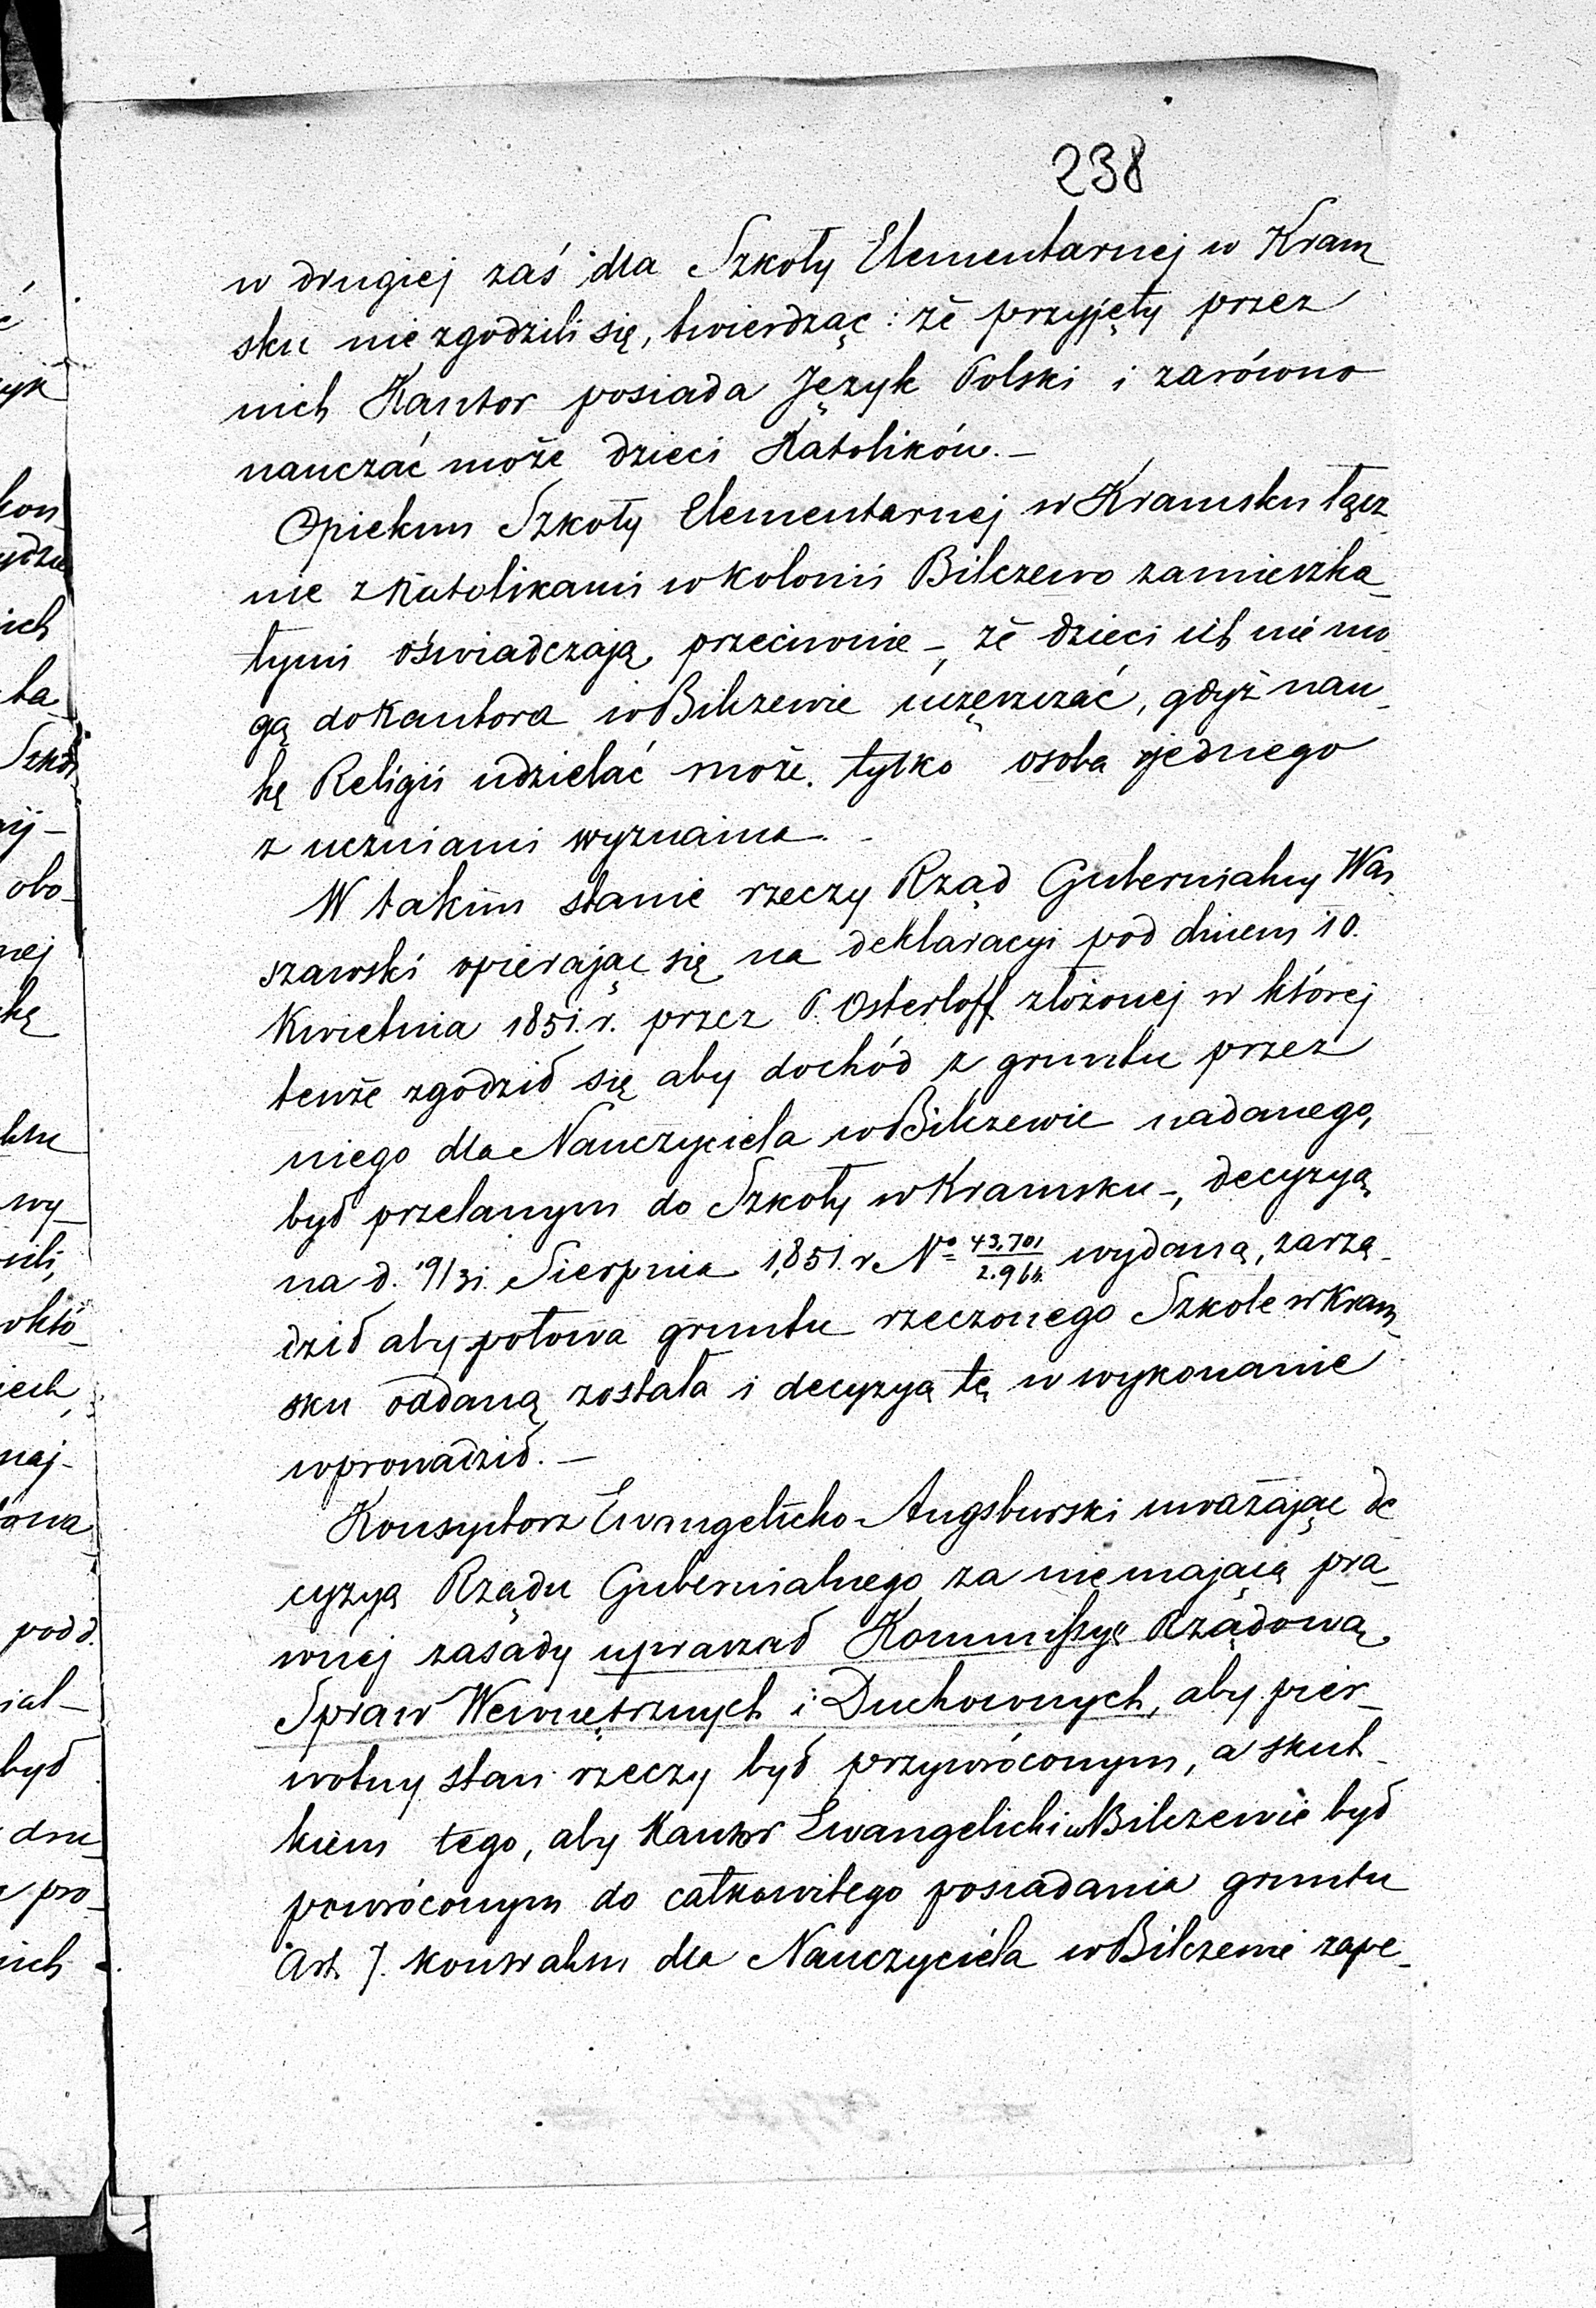 238
w drugiej zaś dla Szkoły Elementarnej w Kram
sku nie zgodzili się, twierdząc: że przyjęty przez
nich Kantor posiada Język Polski i zarówno
nauczać może dzieci Katolików.—
Opiekun Szkoły Elementarnej w Kramsku łącz
nie z Katolikami w kolonii Bilczewo zamieszka_
łymi oświadczają przeciwnie –, że dzieci ich nie mo_
gą do Kantora w Bilczewie uczęszczać, gdyż nau_
kę Religii udzielać może tylko osoba jednego
z uczniami wyznania.–
W takim stanie rzeczy Rząd Gubernialny War
szawski opierając się na deklaracyi pod dniem 10.
Kwietnia 1851. r. przez P. Osterloff złożonej w której
tenże zgodził się aby dochód z gruntu przez
niego dla Nauczyciela w Bilczewie nadanego,
był przelanym do Szkoły w Kramsku –, decyzyą
na d. 19/31. Sierpnia 1851. r. No 43.701/2.964. wydaną, zarzą_
dził aby połowa gruntu rzeczonego Szkole w Kram_
sku oddaną została i decyzyą tę w wykonanie
wprowadził.—
Konsystorz Ewangelicko-Augsburski uważając de
cyzyą Rządu Gubernialnego za nie mającą pra_
wnej zasady upraszał Kommissye Rządową
Spraw Wewnętrznych i Duchownych, aby pier_
wotny stan rzeczy był przywróconym, a skut_
kiem tego, aby Kantor Ewangelicki w Bilczewie był
powróconym do całkowitego posiadania gruntu
Art. 7. kontraktu dla Nauczyciela w Bilczewie zape_